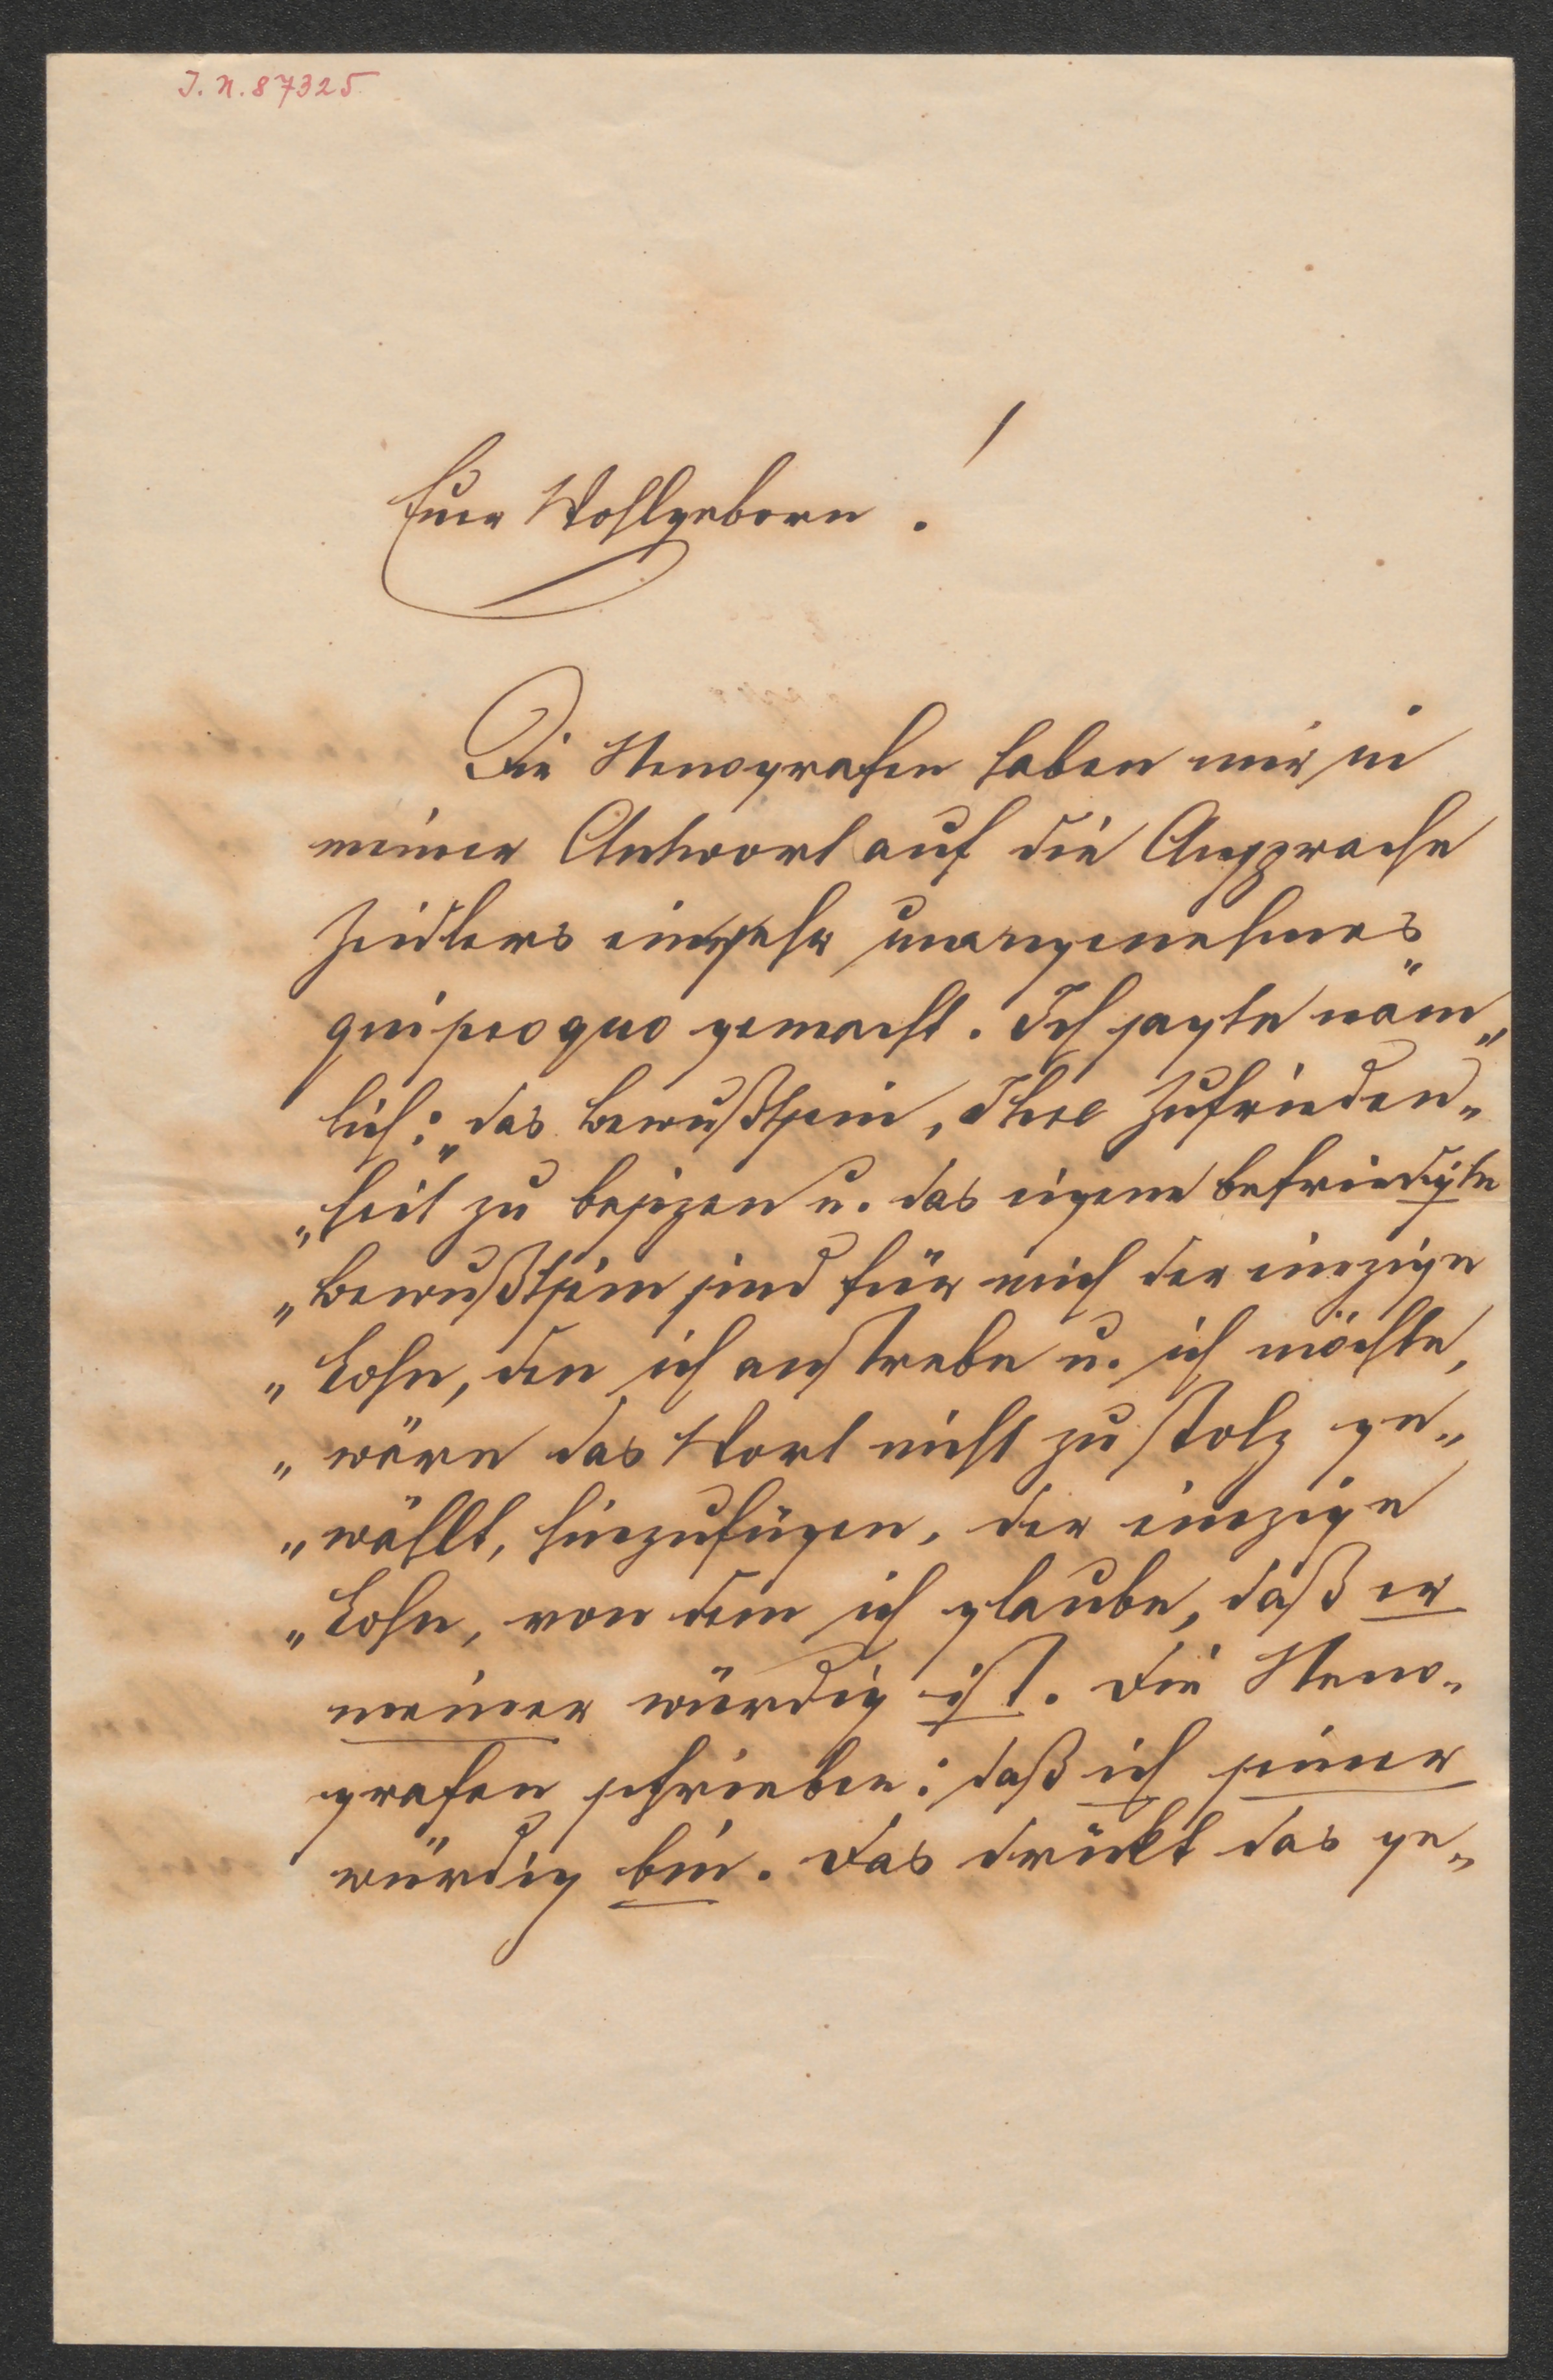 J. N. 87325
Euer Wohlgeborn !
Die Stenografen haben mir in
meiner Antwort auf die Ansprache
Zeidlers ein sehr unangenehmes
qui pro quo gemacht. Ich sagte näm„
lich: „das Bewußtsein, Ihre Zufrieden„
„heit zu besizen u. das eigene befriedigte
„Bewußtsein sind für mich der einzige
„Lohn, den ich anstrebe u. ich möchte,
„wäre das Wort nicht zu stolz ge„
„wählt, hinzufügen, der einzige
„Lohn, von dem ich glaube, daß er
meiner würdig ist. Die Steno„
grafen schrieben: daß ich seiner
würdig bin. Das drückt das ge„